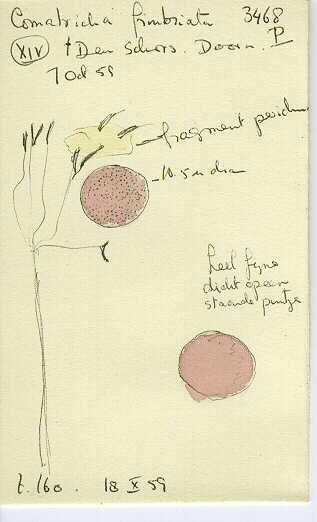 Comatricha fimbriata 3468
XIV † Den Schors. Doorn. P
7 Oct 59
fragment peridium
10.5 u dia
heel fijne
dicht opeen
staande puntjes
t. 160. 18 X 59